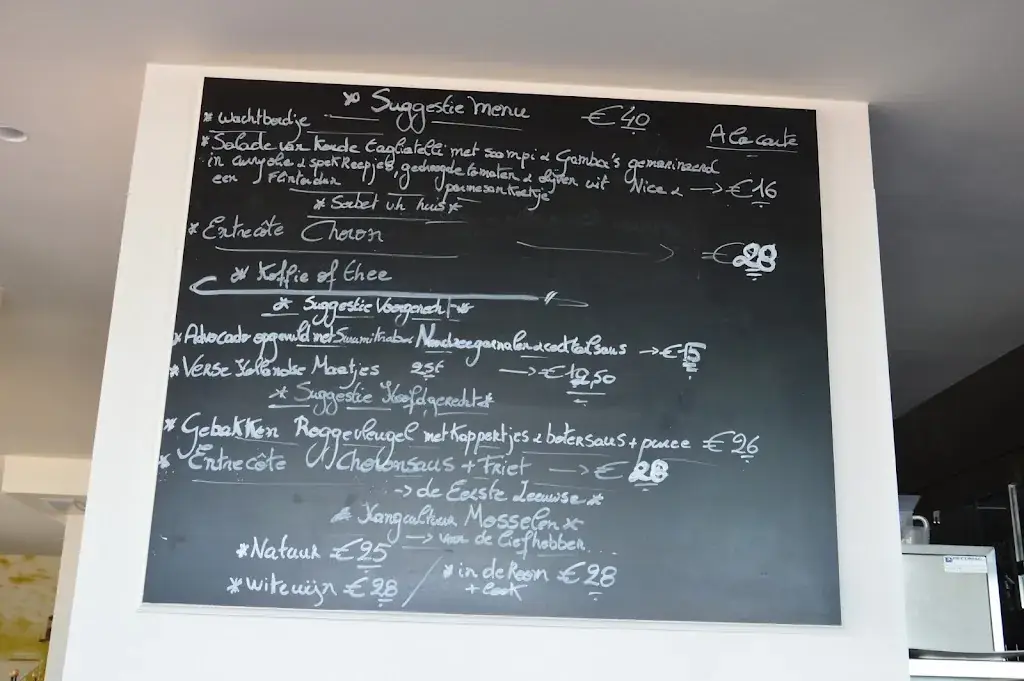 Suggestie Menu €40
A la carte
* Wachtbordje
* Salade van koude tagliatelli met scampi & Gamba's gemarineerd
in & spekreepjes, gedroogde tomaten & olijven uit Nice & → €16
een parmesankoekje
* Sorbet v/h huis *
* Entrecôte Choron → €28
* Koffie of thee
* Suggestie Voorgerecht *
* Advocado opgevuld met Noordzeegarnalen & cocktailsaus → €15
* Verse Hollandse Maatjes → €
* Suggestie Hoofdgerecht *
* Gebakken Roggevleugel met kappertjes & botersaus + puree €26
* Entrecôte Choronsaus + Friet → € 28
→ de Eerste Zeeuwse *
* Hangcultuur Mosselen *
→ voor de liefhebber...
* Natuur €25
* Witewijn €28 / * in de Room €28
+ look